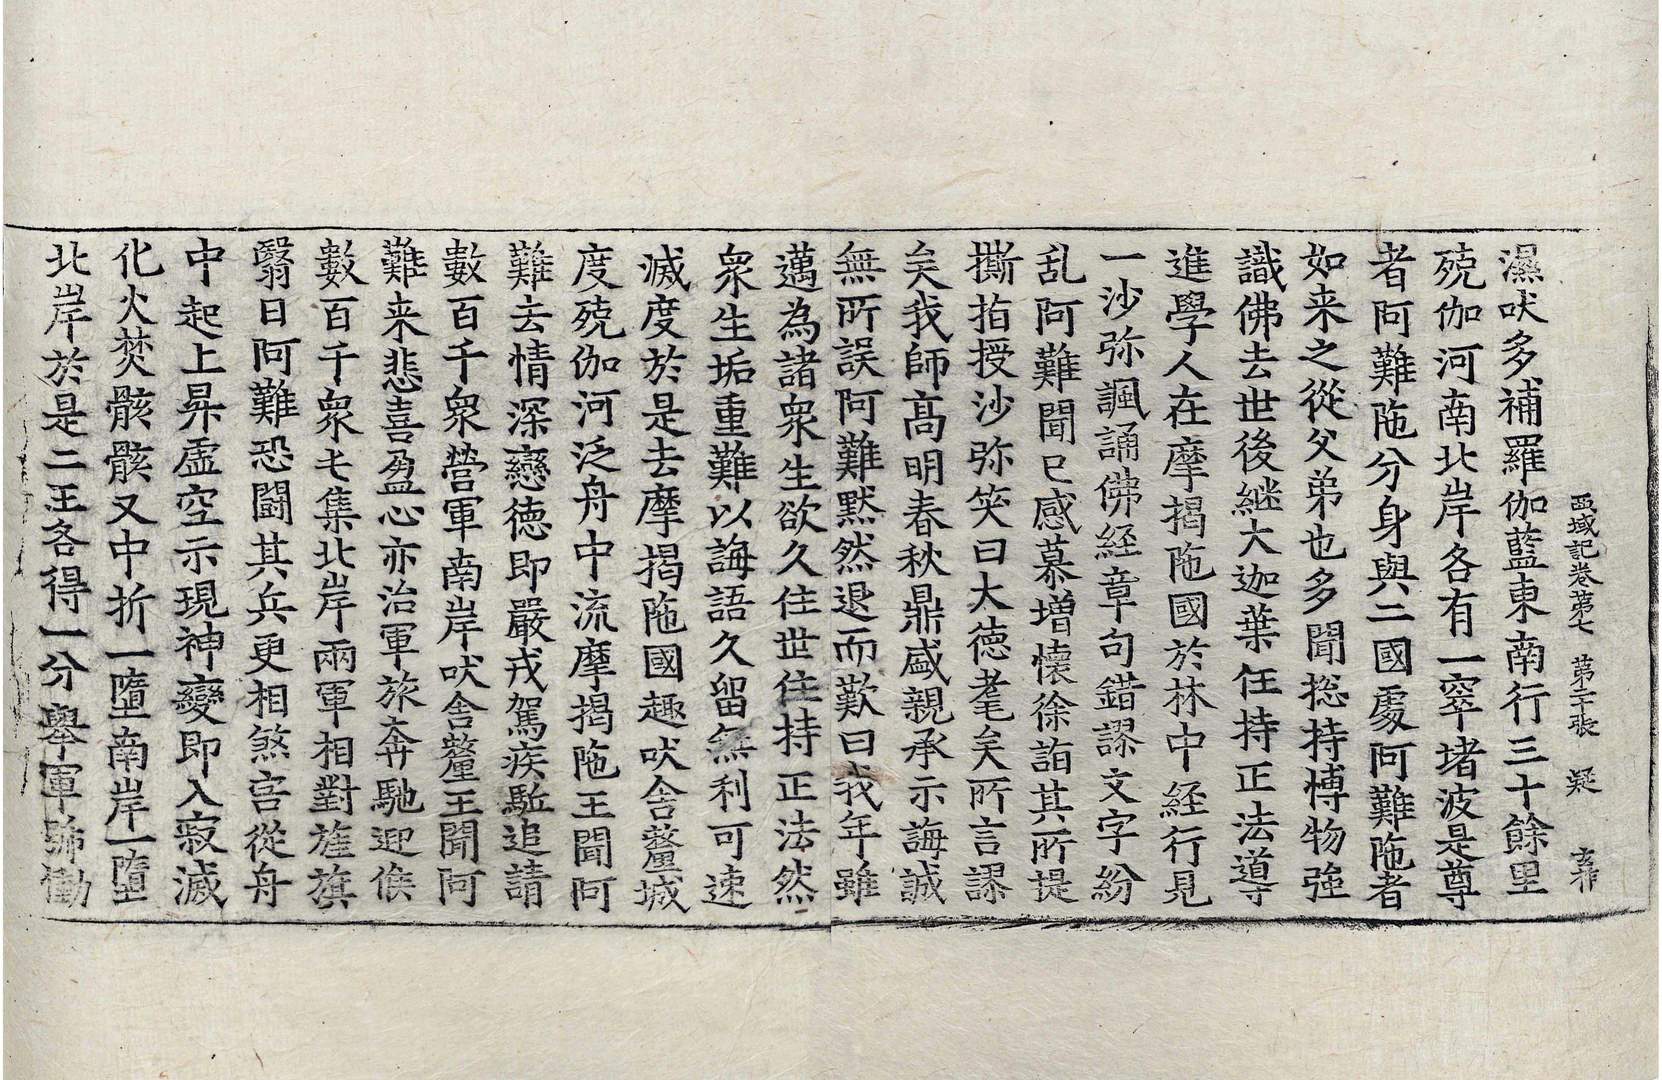 西域記卷第七 第二十張 疑
濕吠多補羅伽藍東南行三十餘里
殑伽河南北岸各有一窣堵波是尊
者阿難陁分身與二國處阿難陁者
如来之從父弟也多聞揔持博物強
識佛去世後継大迦葉任持正法導
進學人在摩揭陁國於林中経行見
一沙弥諷誦佛經章句錯謬文字紛
乱阿難聞已感慕增懷徐詣其所提
撕指授沙弥笑曰大徳耄矣所言謬
矣我師髙明春秋鼎盛親承示誨誠
無所誤阿難黙然退而歎曰我年雖
邁為諸衆生欲久住世住持正法然
衆生垢重難以誨語久留無利可速
滅度於是去摩揭陁國趣吠舍釐城
度殑伽河泛舟中流摩揭陁王聞阿
難去情深戀徳即嚴戎駕疾駈追請
數百千衆營軍南岸吠舍釐王聞阿
難来悲喜盈心亦治軍旅奔馳迎候
數百千衆屯集北岸兩軍相對旌旗
翳日阿難恐鬪其兵更相煞害從舟
中起上昇虛空示現神變即入寂滅
化火焚骸骸又中折一墮南岸一墮
北岸於是二王各得一分舉軍號慟